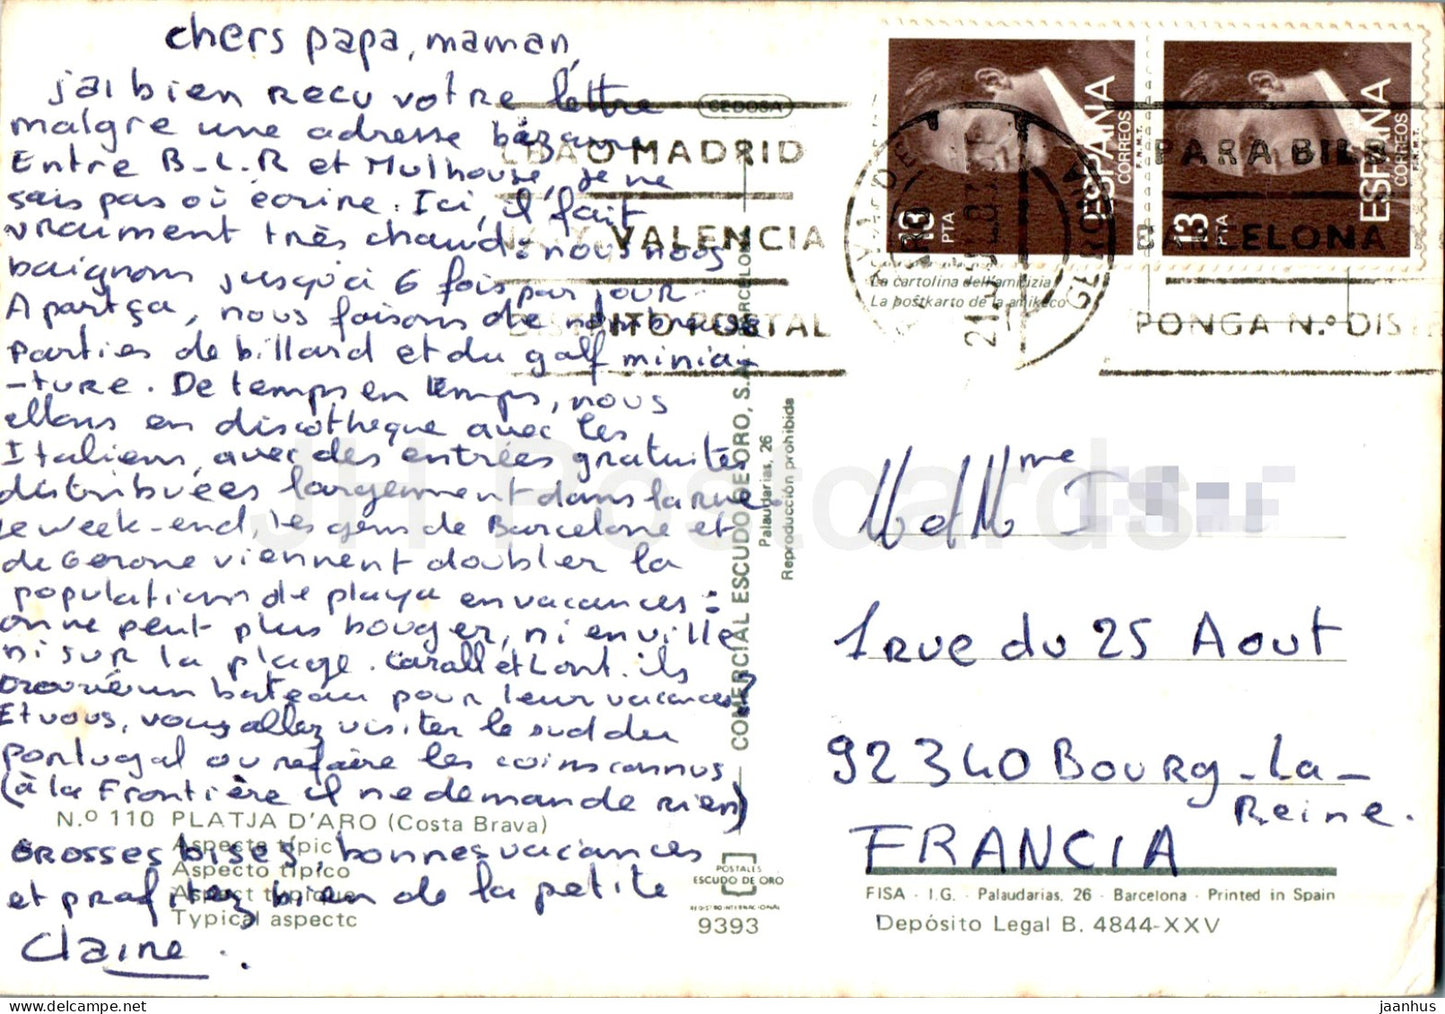 chers papa, maman,
j'ai bien reçu votre lettre
malgré une adresse bizarre
Entre B-L-R et Mulhouse, je ne
sais pas où écrire. Ici, il fait
vraiment très chaud: nous nous
baignons jusqu'à 6 fois par jour
A part ça, nous faisons de nombreuses
parties de billard et du golf minia-
-ture. De temps en temps, nous
allons en discothèque avec les
Italiens, avec des entrées gratuites
distribuées largement dans la rue.
le week-end, les gens de Barcelone et
de Gerone viennent doubler la
population de playa en vacances:
on ne peut plus bouger, ni en ville
ni sur la plage. ils
trouvé un bateau pour leur vacances?
Et vous, vous allez visiter le sud du
Portugal ou refaire les coins connus
(à la Frontière il ne demande rien)
N.º 110 PLATJA D'ARO (Costa Brava)
Aspecte típic
Aspecto típico
Aspect typique
Typical aspect
GROSSES bises, bonnes vacances
et profitez bien de la petite
Claire.
COMERCIAL ESCUDO DE ORO, S.A. BARCELONA
Palaudarias, 26
Reproducción prohibida
POSTALES
ESCUDO DE ORO
REGISTRO INTERNACIONAL
9393
CEDOSA
BAO MADRID
VALENCIA
DISTRITO POSTAL
GERONA
21
PARA BILB
BARCELONA
PONGA N.º DIS
ESPAÑA
CORREOS
F.N.M.T.
13 PTA
ESPAÑA
CORREOS
F.N.M.T.
13 PTA
La cartolina dell'amicizia
La postkarto de la amikeco
M et Mme I
1 rue du 25 Aout
92340 Bourg-La-
Reine.
FRANCIA
FISA - I.G. - Palaudarias, 26 - Barcelona - Printed in Spain
Depósito Legal B. 4844-XXV
JH Postcards
www.delcampe.net
jaanhus